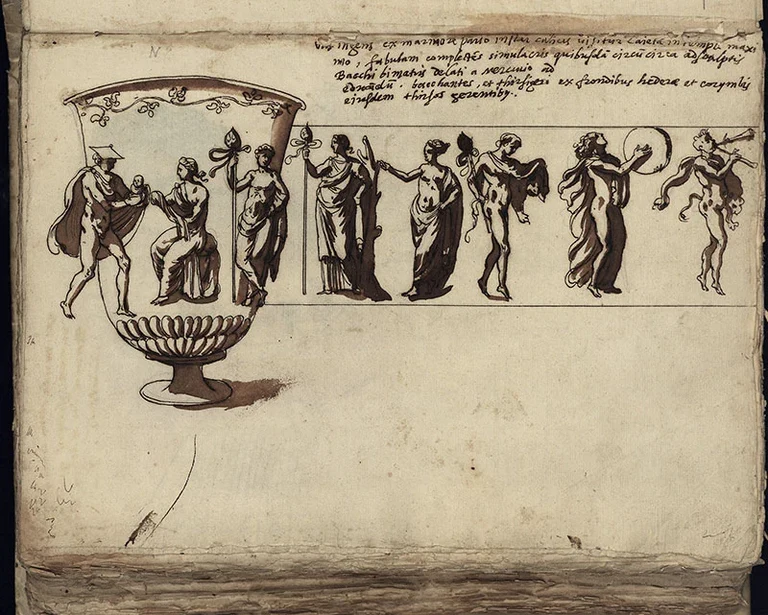 Vas ingens ex marmore pario instar calicis visitur Caietæ in templo maxi
mo, fabulam complectēs simulacris quibusdā circūcirca adscalptis
Bacchi bimatris delati a Mercurio ad
bacchantes, et thirsigeri ex frondibus hederæ et corymbis
eiusdem thirsos gerentibꝫ.
N